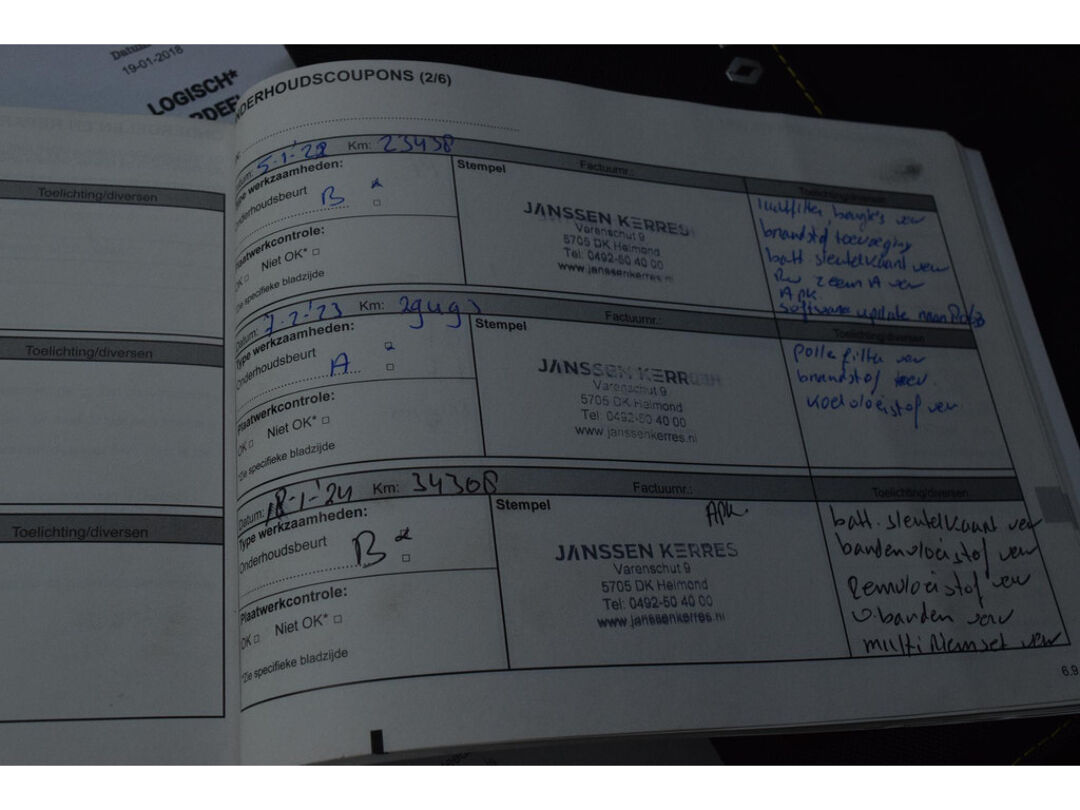 19-01-2018
LOGISCH*
Toelichting/diversen
Toelichting/diversen
Toelichting/diversen
DERHOUDSCOUPONS (2/6)
Datum: 5-1-'22 Km: 23438
Type werkzaamheden:
Onderhoudsbeurt B
Plaatwerkcontrole:
OK Niet OK*
*Zie specifieke bladzijde
Stempel
Factuurnr.:
JANSSEN KERRES
Varenschut 9
5705 DK Helmond
Tel: 0492-50 40 00
www.janssenkerres.nl
Toelichting/diversen
luchtfilter, bougie's ver
brandstof toevoeging
batt sleutelkaart ver
APK.
software update
Datum: 7-2-'23 Km:
Type werkzaamheden:
Onderhoudsbeurt A
Plaatwerkcontrole:
OK Niet OK*
*Zie specifieke bladzijde
Stempel
Factuurnr.:
JANSSEN KERRES
Varenschut 9
5705 DK Helmond
Tel: 0492-50 40 00
www.janssenkerres.nl
Toelichting/diversen
Pollefilter ver
brandstof toev.
koelvloeistof ver.
Datum: 18-1-'24 Km: 34308
Type werkzaamheden:
Onderhoudsbeurt B
Plaatwerkcontrole:
OK Niet OK*
*Zie specifieke bladzijde
Stempel
Factuurnr.:
APK
JANSSEN KERRES
Varenschut 9
5705 DK Helmond
Tel: 0492-50 40 00
www.janssenkerres.nl
Toelichting/diversen
batt. sleutelkaart ver
bandenvloeistof ver
Remvloeistof ver
v.banden ver
multiriemset ver
6.9